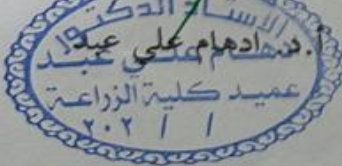 الاستاذ الدكتور
أ.د. ادهام علي عبد
ادهام علي عبد
عميد كلية الزراعة
/ / ٢٠٢